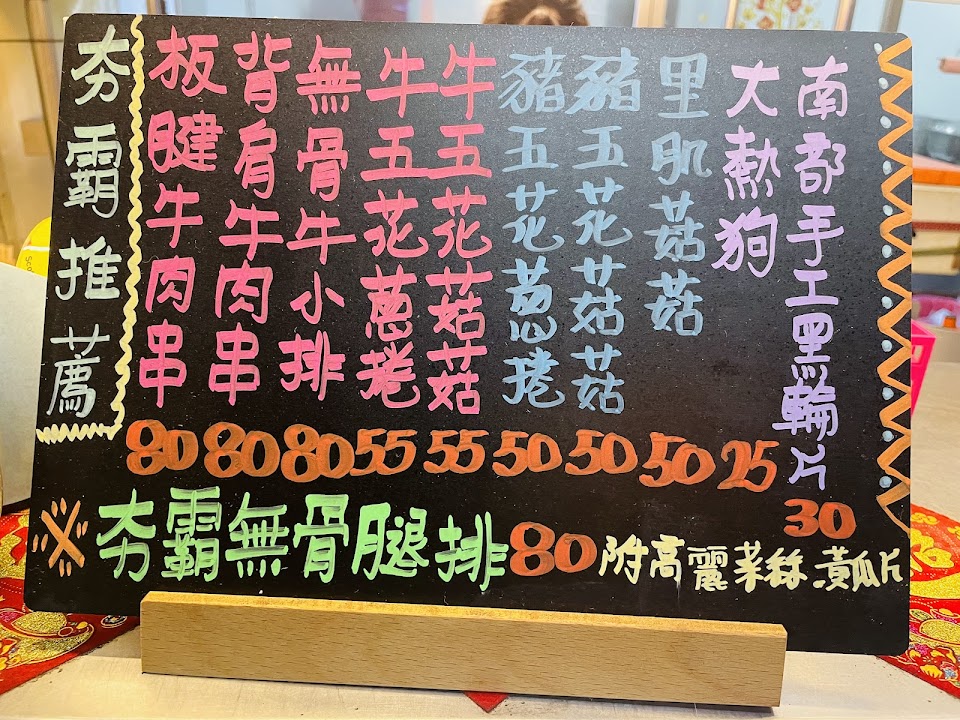 南部手工黑輪片 30
大熱狗 25
里肌菇菇 50
豬五花菇菇 50
豬五花蔥捲 50
牛五花菇菇 55
牛五花蔥捲 55
無骨牛小排 80
背肩牛肉串 80
板腱牛肉串 80
夯霸推薦
※夯霸無骨腿排80附高麗菜絲.黃瓜片